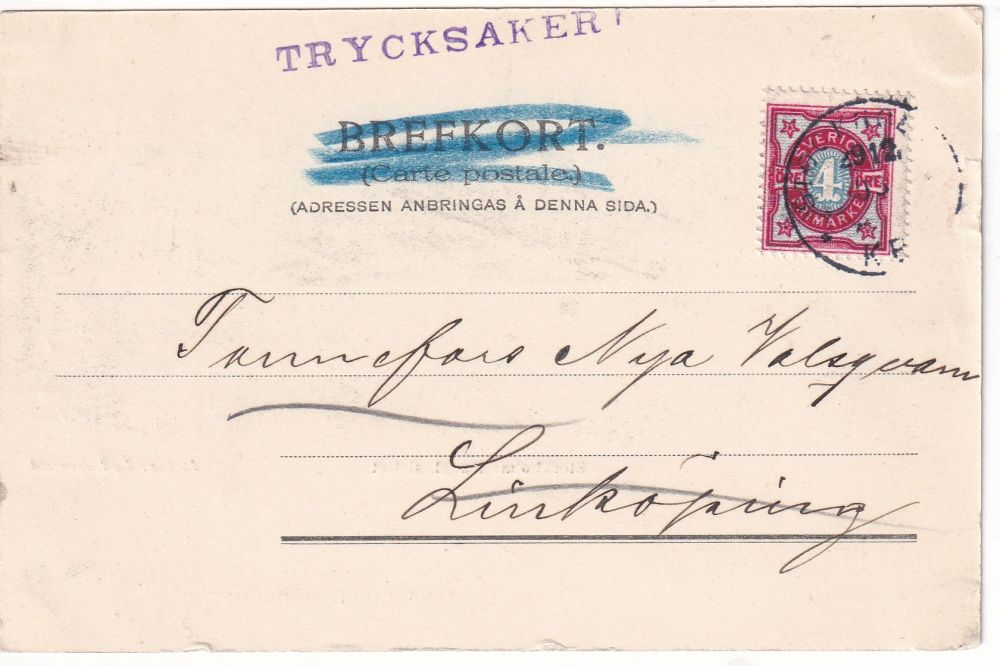 TRYCKSAKER
BREFKORT.
(Carte postale.)
(ADRESSEN ANBRINGAS Å DENNA SIDA.)
SVERIGE
4
ÖRE ÖRE
FRIMÄRKE
Tannefors Nya Valsqvarn
Linköping